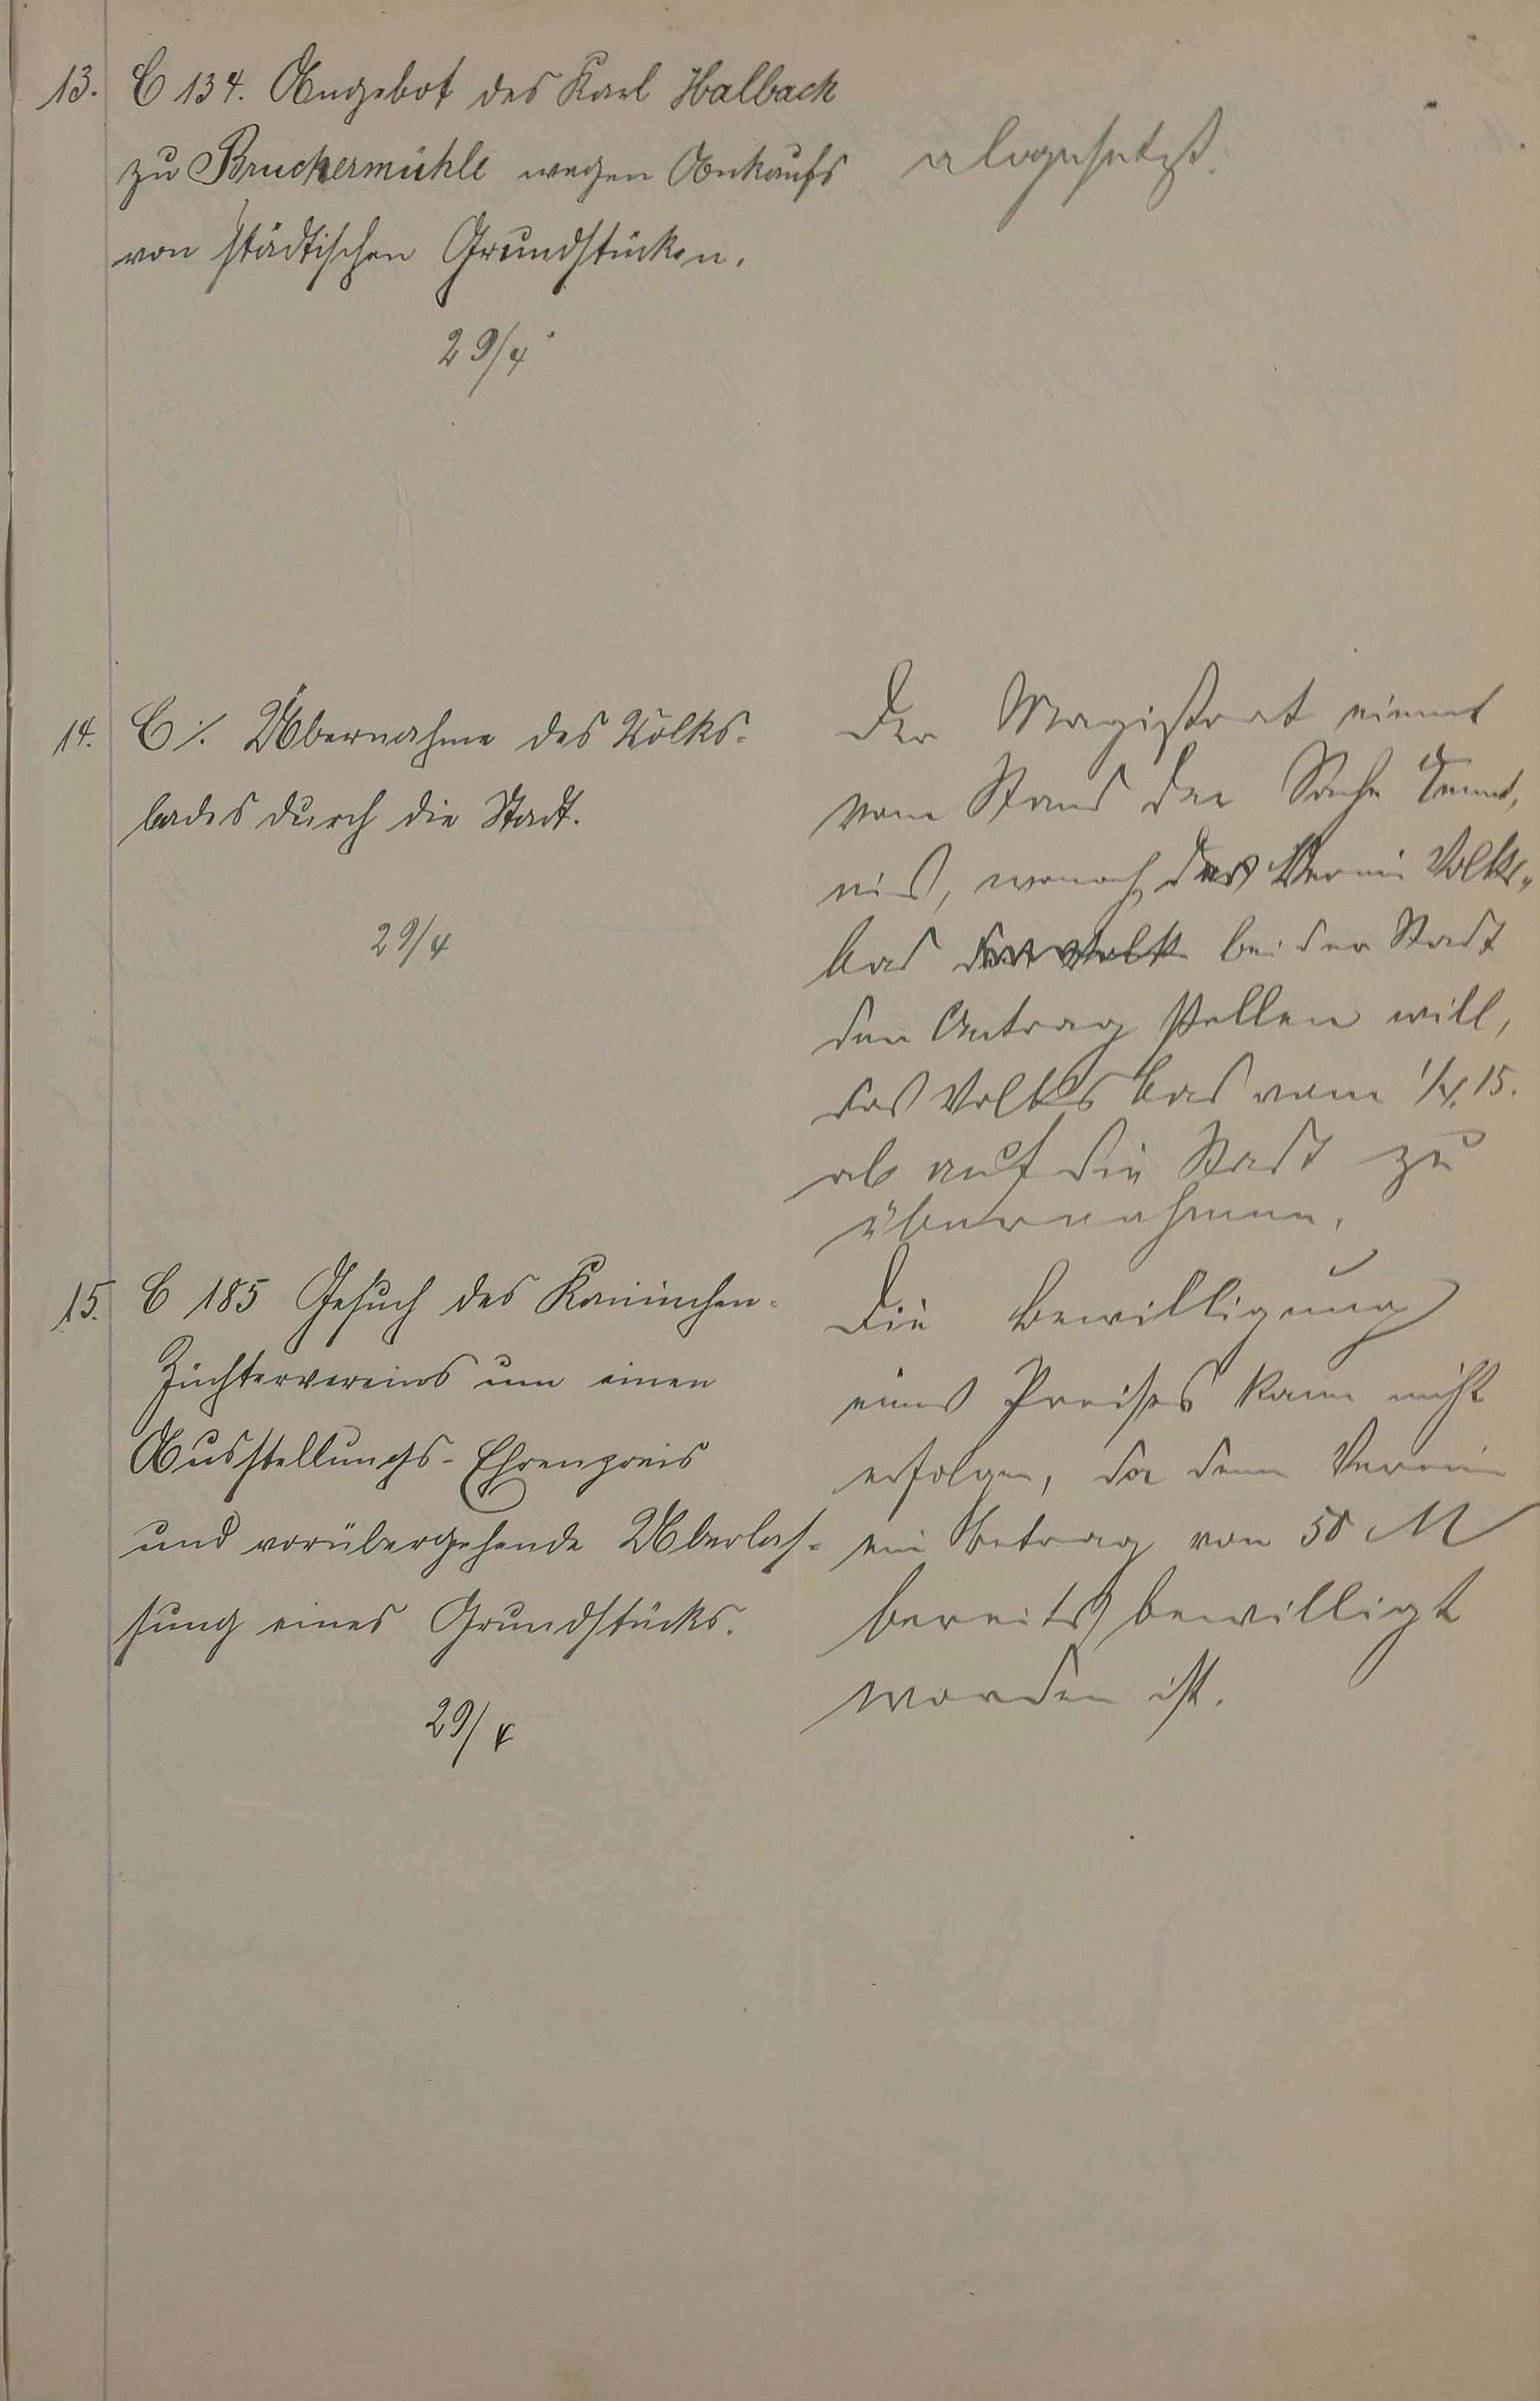 13. C 134. Angebot des Karl Halbach
zu Bruckermühle wegen Ankaufs
von städtischen Grundstücken.
29/4
abgesetzt.
14. C ./. Übernahme des Volks-
bades durch die Stadt.
29/4
Der Magistrat nimmt
vom Stand der Sache Kennt-
nis, wonach der Verein Volks-
bad bei der Stadt
den Antrag stellen will,
das Volksbad vom 1/4. 15.
ab auf die Stadt zu
übernehmen.
15. C 185 Gesuch des Kaninchen-
Züchtervereins um einen
Ausstellungs-Ehrenpreis
und vorübergehende Überlas-
sung eines Grundstücks.
29/4
Die Bewilligung
eines Preises kann nicht
erfolgen, da dem Verein
ein Betrag von 50 M
bereits bewilligt
worden ist.